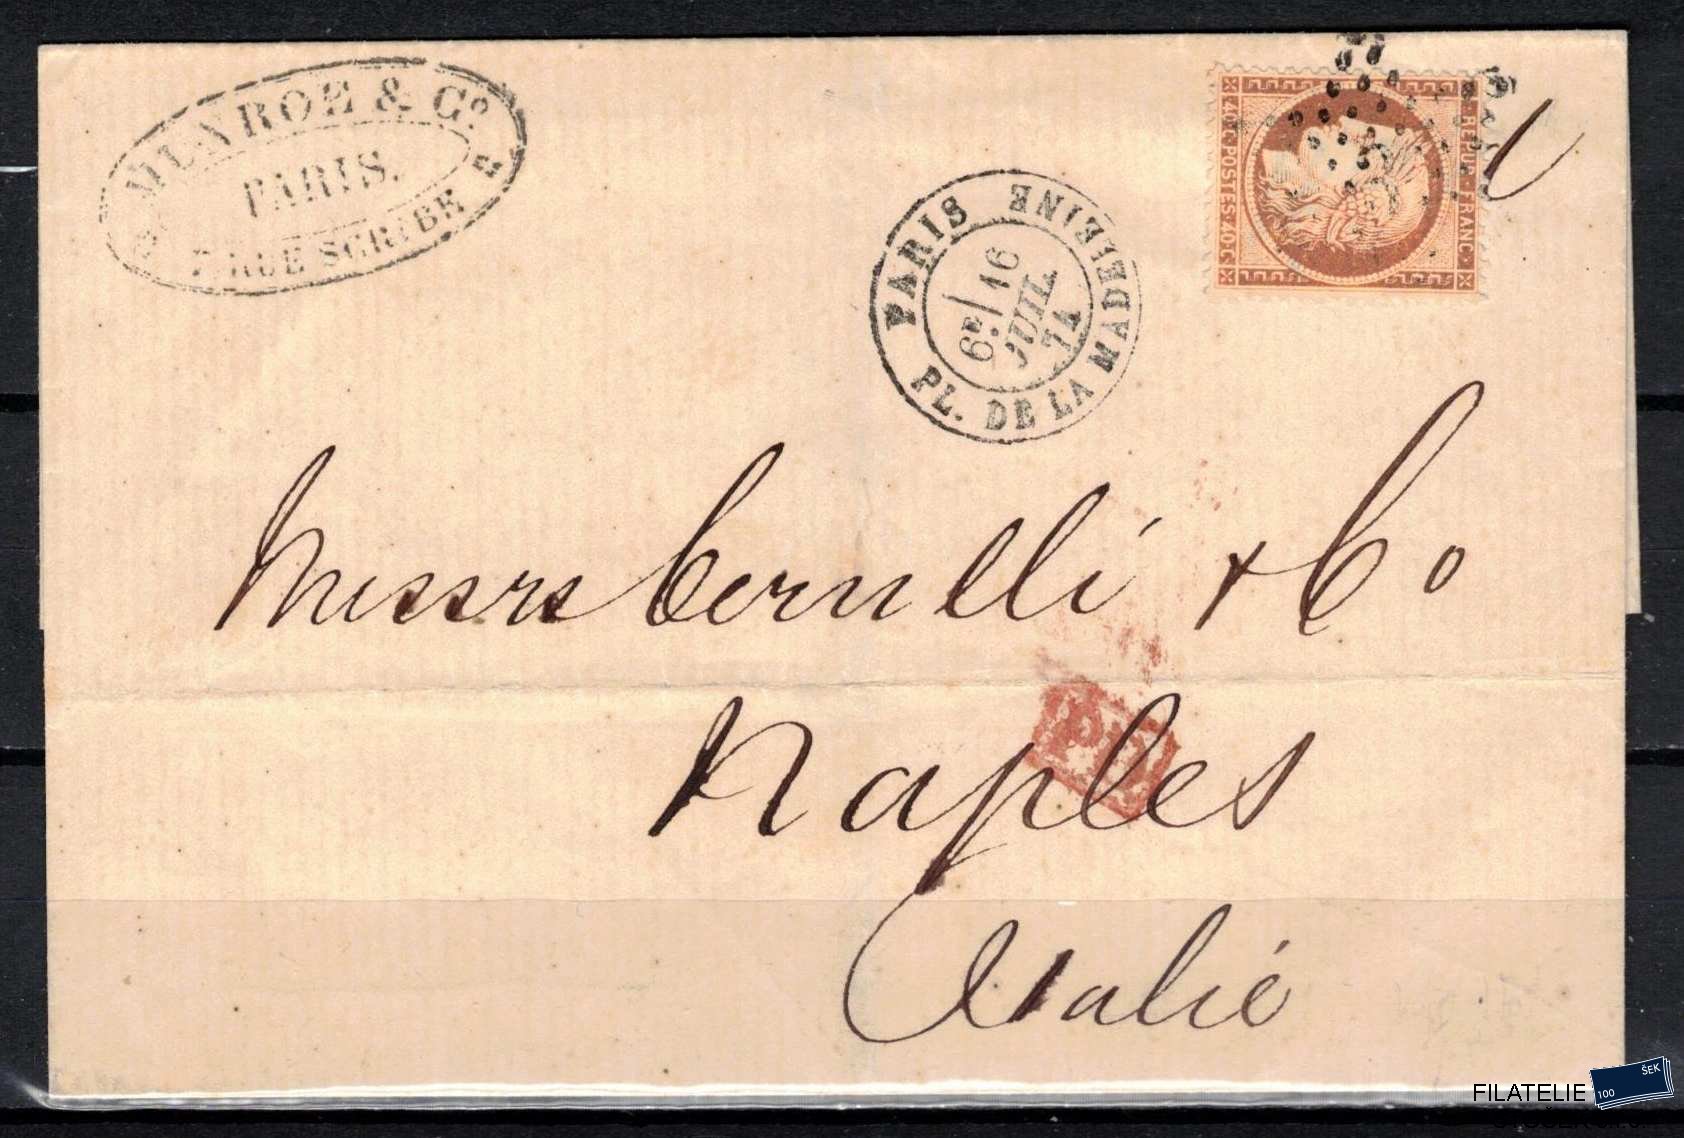 MUNROE & Co.
PARIS.
7. RUE SCRIBE
PARIS
PL. DE LA MADELEINE
6E/ 16
JUIL.
74
40·C·POSTES·40·C
REPUB·FRANC·
PD
Messrs Cerulli & Co
Naples
Italie
FILATELIE
100
ŠEK